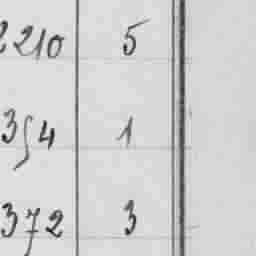 2210 5
354 1
372 3